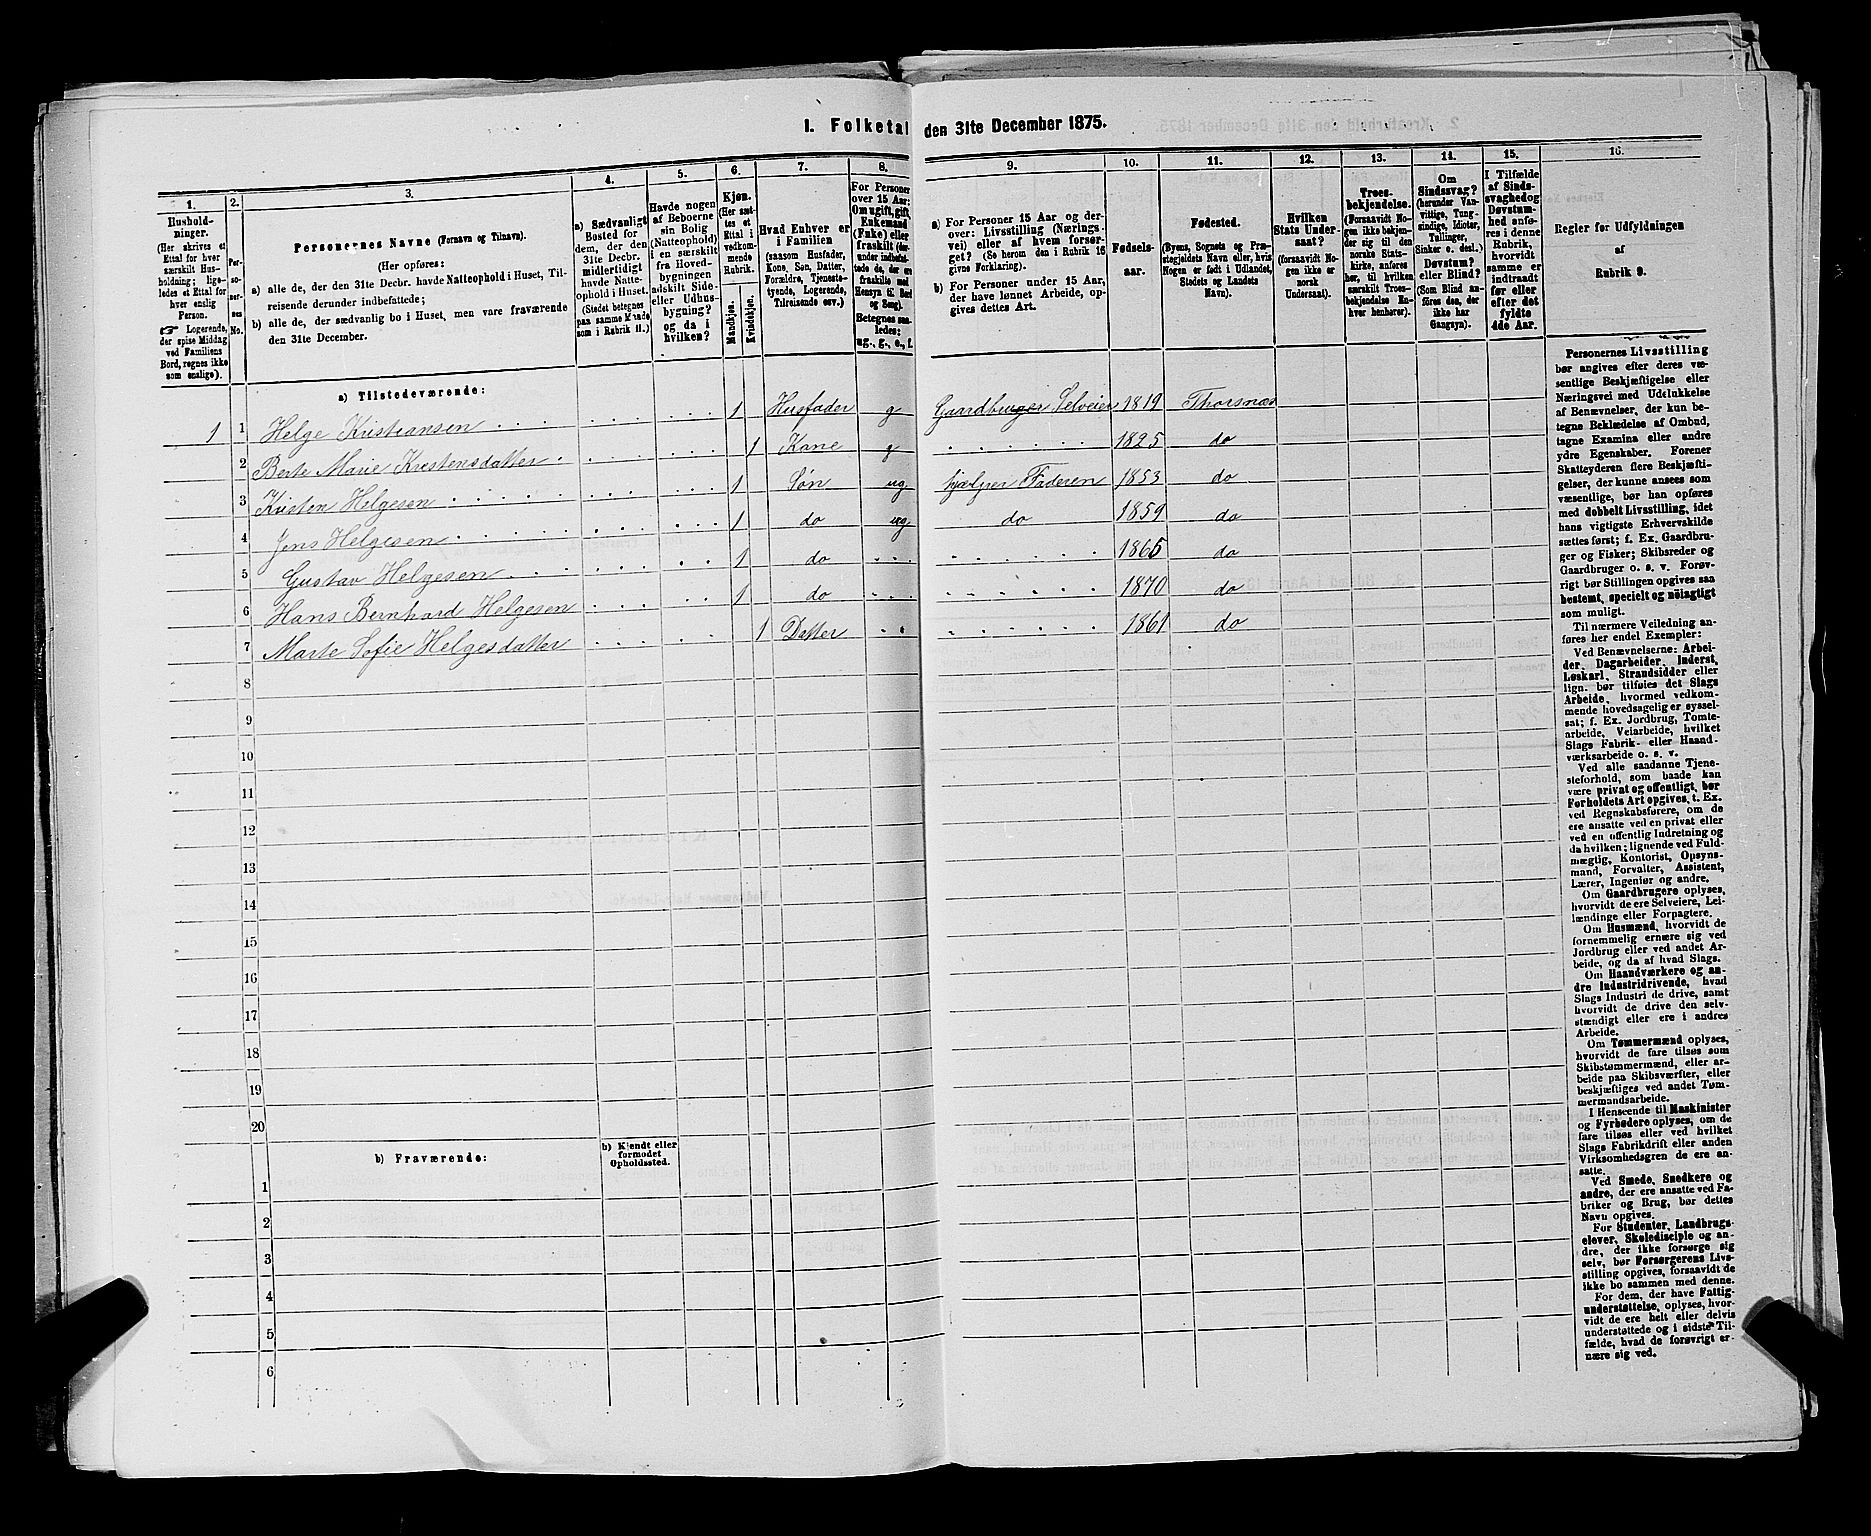 1. Folketal den 31te December 1875.
1.
Hushold-
ninger.
(Her skrives et
Ettal for hver
særskilt Hus-
holdning; lige-
ledes et Ettal for
hver enslig
Person.
☞ Logerende,
der spise Middag
ved Familiens
Bord, regnes ikke
som enslige).
2.
Per-
so-
ner-
nes
No.
3.
Personernes Navne (Fornavn og Tilnavn).
(Her opføres:
a) alle de, der den 31te Decbr. havde Natteophold i Huset, Til-
reisende derunder indbefattede;
b) alle de, der sædvanlig bo i Huset, men vare fraværende
den 31te December.
4.
a) Sædvanligt
Bosted for
dem, der den
31te Decbr.
midlertidigt
havde Natte-
ophold i Huset.
(Stedet betegnes
paa samme Maade
som i Rubrik 11.)
5.
Havde nogen
af Beboerne
sin Bolig
(Natteophold)
i en særskilt
fra Hoved-
bygningen
adskilt Side-
eller Udhus-
bygning?
og da i
hvilken?
6.
Kjøn.
(Her sæt-
tes et
Ettal i
vedkom-
mende
Rubrik.
Mandkjøn.
Kvindekjøn.
7.
Hvad Enhver er
i Familien
(saasom Husfader,
Kone, Søn, Datter,
Forældre, Tjeneste-
tyende, Logerende,
Tilreisende osv.)
8.
For Personer
over 15 Aar:
Om ugift, gift,
Enkemand
(Enke) eller
fraskilt (der-
under indbefat-
tede de, der ere
fraskilte med
Hensyn til Bord
og Seng).
Betegnes saa-
ledes:
ug., g., e., f.
9.
a) For Personer 15 Aar og der-
over: Livsstilling (Nærings-
vei) eller af hvem forsør-
get? (Se herom den i Rubrik 16
givne Forklaring).
b) For Personer under 15 Aar,
der have lønnet Arbeide, op-
gives dettes Art.
10.
Fødsels-
aar.
11.
Fødested.
(Byens, Sognets og Præ-
stegjeldets Navn eller, hvis
Nogen er født i Udlandet,
Stedets og Landets
Navn).
12.
Hvilken
Stats Under-
saat?
(forsaavidt No-
gen ikke er
norsk
Undersaat).
13.
Troes-
bekjendelse.
(Forsaavidt No-
gen ikke bekjen-
der sig til den
norske Stats-
kirke, anføres
her, til hvilken
særskilt Troes-
bekjendelse En-
hver henhører).
14.
Om
Sindssvag?
(herunder Van-
vittige, Tung-
sindige, Idioter,
Tullinger,
Sinker o. desl.)
Døvstum?
eller Blind?
(Som Blind an-
føres den, der
ikke har
Gangsyn).
15.
I Tilfælde
af Sinds-
svaghed og
Døvstum-
hed anfø-
res i denne
Rubrik,
hvorvidt
samme er
indtraadt
før eller
efter det
fyldte
4de Aar.
16.
Regler for Udfyldningen
af
Rubrik 9.
a) Tilstedeværende:
1 1 Helge Kristiansen 1 Husfader g Gaardbruger Selveier 1819 Thorsnæs
2 Berte Marie Kristensdatter 1 Kone g 1825 do
3 Kristen Helgesen 1 Søn ug hjælper Faderen 1853 do
4 Jens Helgesen 1 do ug do 1859 do
5 Gustav Helgesen 1 do 1865 do
6 Hans Bernhard Helgesen 1 do 1870 do
7 Marte Sofie Helgesdatter 1 Datter 1861 do
8
9
10
11
12
13
14
15
16
17
18
19
20
b) Fraværende:
b) Kjendt eller
formodet
Opholdssted.
1
2
3
4
5
6
Personernes Livsstilling
bør angives efter deres væ-
sentlige Beskjæftigelse eller
Næringsvei med Udelukkelse
af Benævnelser, der kun be-
tegne Beklædelse af Ombud,
tagne Examina eller andre
ydre Egenskaber. Forener
Skatteyderen flere Beskjæfti-
gelser, der kunne ansees som
væsentlige, bør han opføres
med dobbelt Livsstilling, idet
hans vigtigste Erhvervskilde
sættes først; f. Ex. Gaardbru-
ger og Fisker; Skibsreder og
Gaardbruger o. s. v. Forøv-
rigt bør Stillingen opgives saa
bestemt, specielt og nøiagtigt
som muligt.
Til nærmere Veiledning an-
føres her endel Exempler:
Ved Benævnelserne: Arbei-
der, Dagarbeider, Inderst,
Løskarl, Strandsidder eller
lign. bør tilføies det Slags
Arbeide, hvormed vedkom-
mende hovedsagelig er syssel-
sat; f. Ex. Jordbrug, Tomte-
arbeide, Veiarbeide, hvilket
Slags Fabrik- eller Haand-
værksarbeide o. s. v.
Ved alle saadanne Tjene-
steforhold, som baade kan
være privat og offentligt, bør
Forholdets Art opgives, t. Ex.
ved Regnskabsførere, om de
ere ansatte ved en privat eller
ved en offentlig Indretning og
da hvilken; lignende ved Fuld-
mægtig, Kontorist, Opsyns-
mand, Forvalter, Assistent,
Lærer, Ingeniør og andre.
Om Gaardbrugere oplyses,
hvorvidt de ere Selveiere, Lei-
lændinge eller Forpagtere.
Om Husmænd, hvorvidt de
fornemmelig ernære sig ved
Jordbrug eller ved andet Ar-
beide, og da af hvad Slags.
Om Haandværkere og an-
dre Industridrivende, hvad
Slags Industri de drive, samt
hvorvidt de drive den selv-
stændigt eller ere i andres
Arbeide.
Om Tømmermænd oplyses,
hvorvidt de fare tilsøs som
Skibstømmermænd, eller ar-
beide paa Skibsværfter, eller
beskjæftiges ved andet Tøm-
mermandsarbeide.
I Henseende til Maskinister
og Fyrbødere oplyses, om de
fare tilsøs eller ved hvilket
Slags Fabrikdrift eller anden
Virksomhedsgren de ere an-
satte.
Ved Smede, Snedkere og
andre, der ere ansatte ved Fa-
briker og Brug, bør dettes
Navn opgives.
For Studenter, Landbrugs-
elever, Skoledisciple og an-
dre, der ikke forsørge sig
selv, bør Forsørgerens Livs-
stilling opgives, forsaavidt de
ikke bo sammen med denne.
For dem, der have Fattig-
understøttelse, oplyses, hvor-
vidt de ere helt eller delvis
understøttede og i sidste Til-
fælde, hvad de forøvrigt er-
nære sig ved.